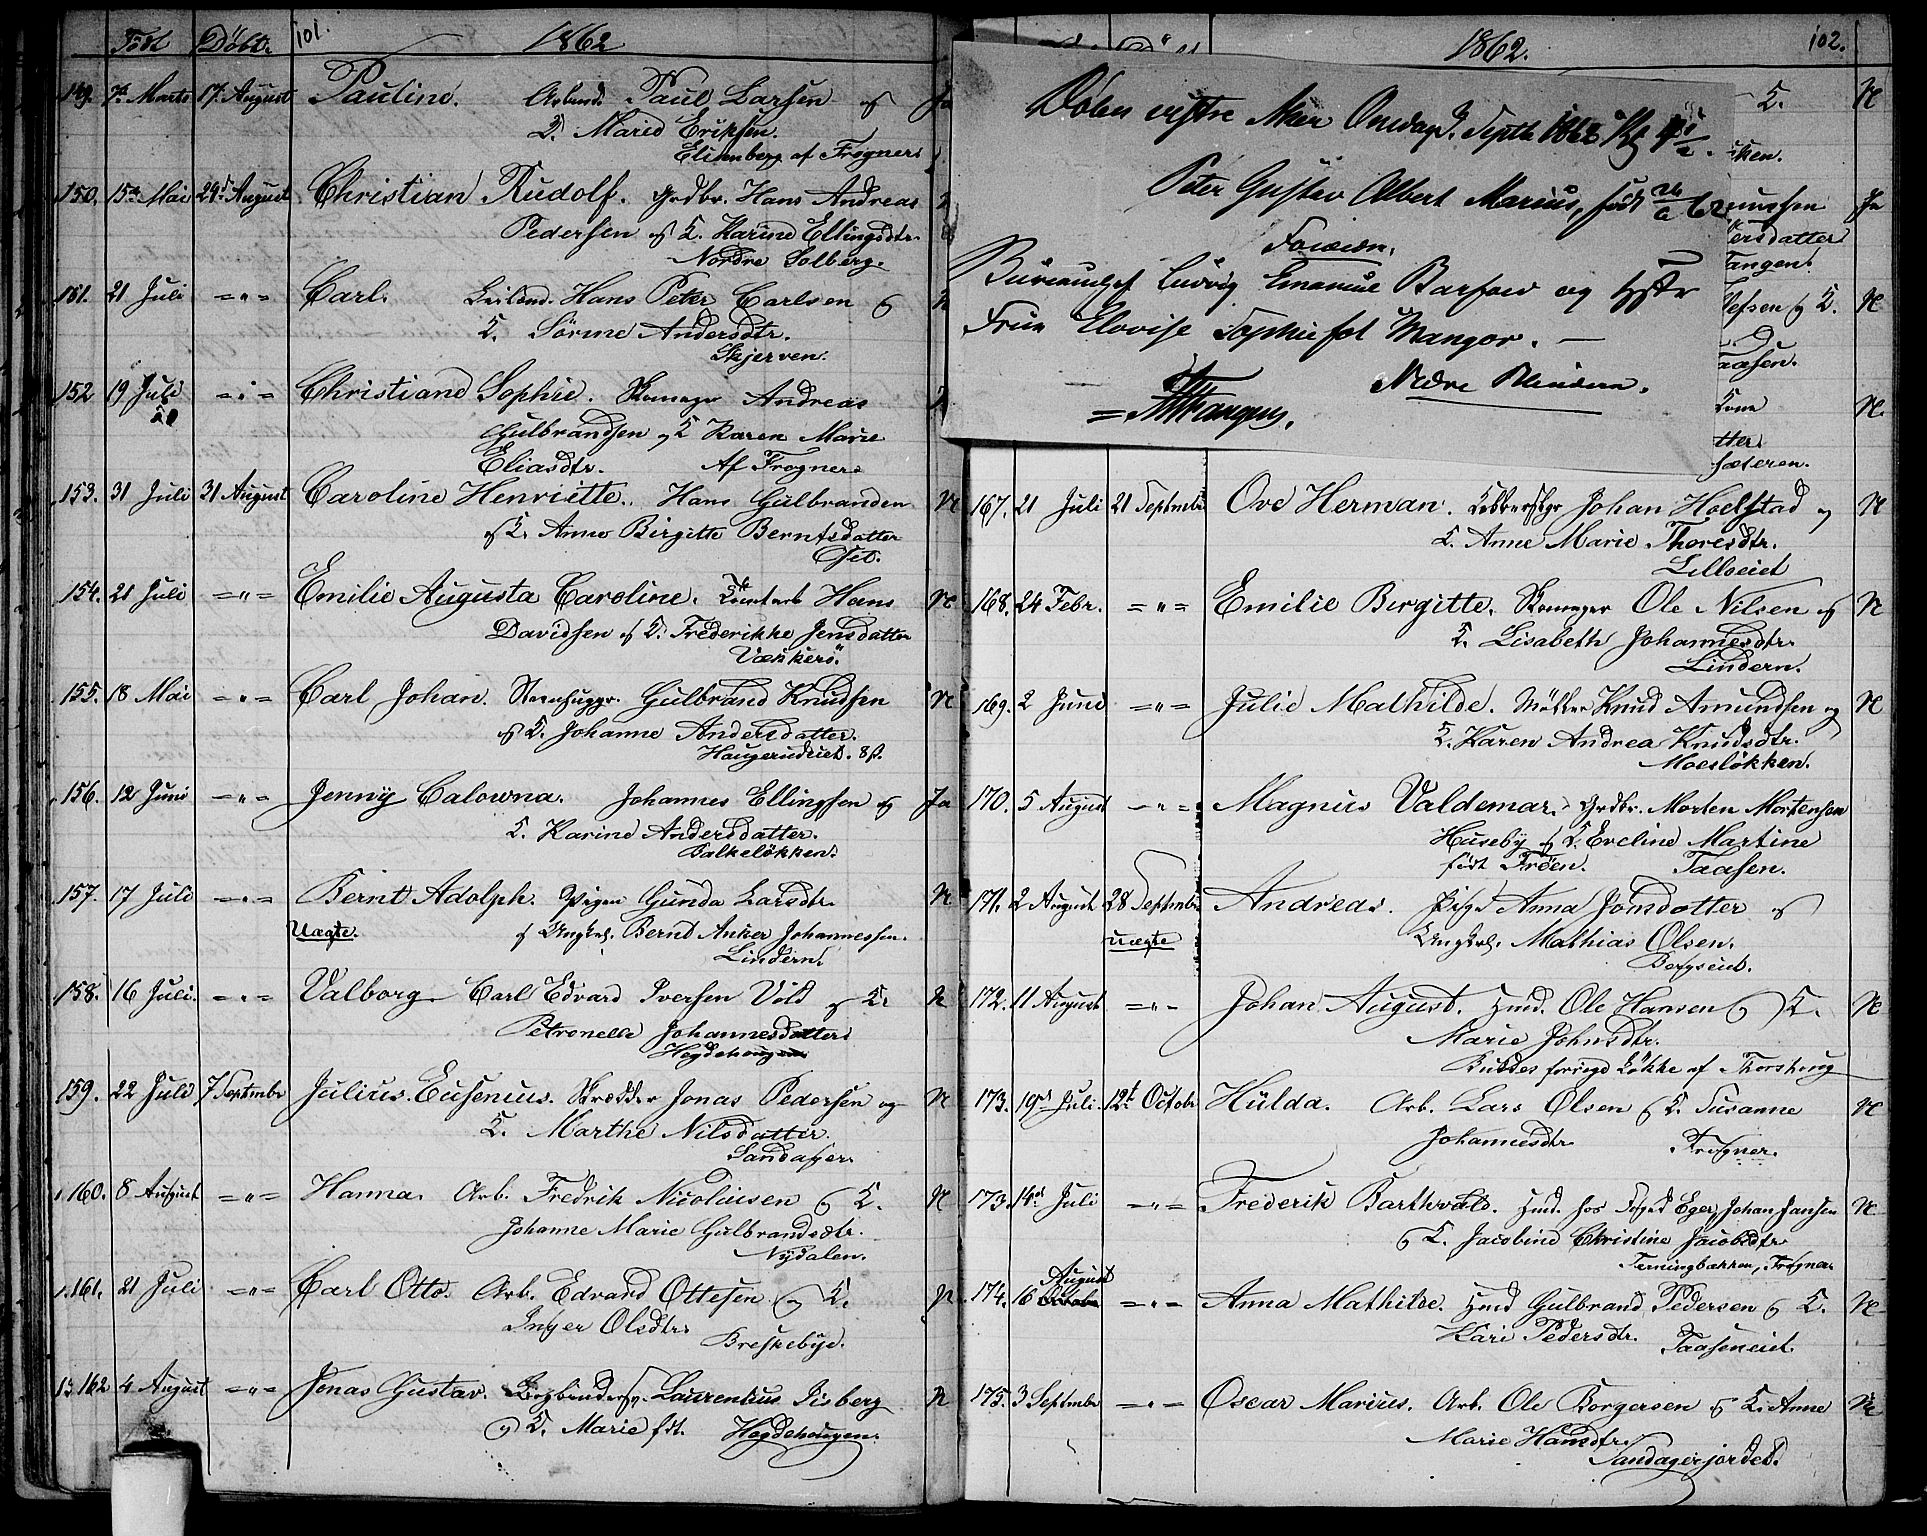 Født Døbt. 101. 1862
149. 7de Marts 17. August Pauline. Arbmd. Paul Larsen og Ja
K. Marie Eriksen.
Elisenberg af Frogner
150. 15de Mai 24de August Christian Rudolf. Grdbr. Hans Andreas
Pedersen og K. Karine Ellingsdtr.
Nordre Solberg.
151. 21 Juli -"- Carl. Leilend. Hans Peter Carlsen og
K. Sörine Andersdtr.
Skjerven.
152 19 Juli -"- Christiane Sophie. Skomager Andreas
Gulbrandsen og K Karen Marie
Eliasdtr. Af Frogner
153. 31 Juli 31 August Caroline Henriette. Hans Gulbrandsen N
og K. Anne Birgitte Berntsdatter
154. 21 Juli ="= Emilie Augusta Caroline. Hans N
Davidsen og K. Frederikke Jensdatter
Vækkerö.
155. 18 Mai -"- Carl Johan. Steenhugger. Gulbrand Knudsen N
og K. Johanne Andersdatter.
Haugerudeiet.
156. 12 Juni -"- Jenny Calowna. Johannes Ellingsen og Ja
K. Karine Andersdatter.
Balkeløkken.
157. 17 Juli -"- Bernt Adolph. Pigen Gunda Larsdtr. N
Uægte. og Ungkrl. Bernd Anker Johannessen.
Lindern.
158. 16 Juli. -"- Valborg Carl Edvard Iversen Vold og K. N
Petronelle Johannesdatter
Hegdehougen
159. 22 Juli 7 Septembr Julius Eusenius. Skrædder Jonas Pedersen og N
K. Marthe Nilsdatter
Sandager
160. 8 August ="= Hanna. Arb. Fredrik Nicolaisen og K. N
Johanne Marie Gulbrandsdtr.
Nydalen.
161. 21 Juli ="= Carl Otto. Arb. Edvard Ottesen og K. N
Inger Olsdtr.
Breskebye.
162 4 August ="= Jonas Gustav. Bogbindersv. Laurentius Isberg N
og K. Marie fdt. Hegdehougen.
1862. 102.
K. N
Døbt vestre Aker Onsdag Septb 1862
Peter Gustav Albert Marius, født 62
Forældre.
Bureauchef Ludvig Emanuel Barfoed og Hustr
Frue Elovise Sophie fdt Mangor. —
Nedre Blindern.
ken.
mussen Ja
ersdatter
Tangen.
lefsen og K. N
aasen.
Kone N.
tter.
sæteren.
167. 21 Juli 21 Septembr Ove Herman. Kobberslgr Johan Hoelstad og N
K. Anne Marie Thoresdtr.
Lilleeiet
168. 24 Febr. ="= Emilie Birgitte. Skomager Ole Nilsen og N
K. Lisabeth Johannesdtr.
Lindern.
169. 2 Juni ="= Julie Mathilde. Møller Knud Amundsen og N
K. Karen Andrea Knudsdtr.
Moeslökken.
170. 5 August -"- Magnus Valdemar. Grdbr. Morten Mortensen
Huseby og K. Eveline Martine
født Frøen. Taasen.
171. 2 August 28 Septembr Andreas. Pige Anna Jonsdotter og
uægte Ungkrl. Mathias Olsen.
Bergseiet.
172. 11 August ="- Johan August. Hmd. Ole Hansen og K. N
Marie Johnsdtr.
Løkke af Thorshoug
173. 19de Juli. 12te Octobr Hulda. Arb. Lars Olsen og K. Susanne N
Johannesdtr Frogner.
173. 14de Juli -"- Frederik Barthvald. Hmd. hos Foged Eger, Johan Jansen N
og K. Jacobine Christine Jacobsdtr
Terningbækken, Frogner
August
174. 16 ="= Anna Mathilde. Hmd Gulbrand Pedersen og K. N
Kari Pedersdtr. Taaseneiet
175. 3 Septembr -"- Oscar Marius. Arb. Ole Borgersen og K. Anne N
Marie Hansdtr.
Sandagerjordet.